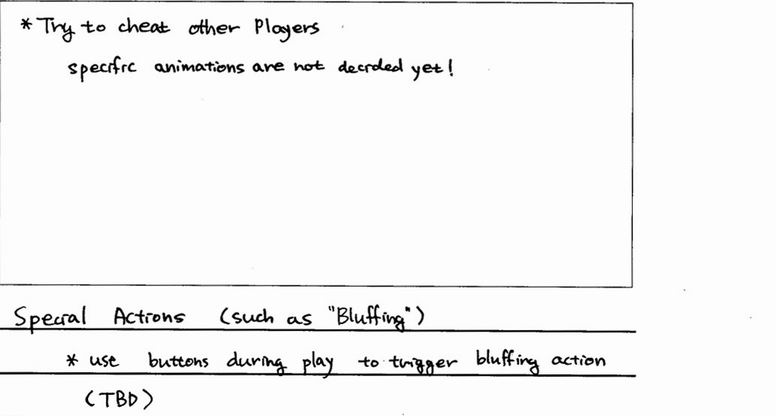 * Try to cheat other Players
specific animations are not decided yet!
Special Actions (such as "Bluffing")
* use buttons during play to trigger bluffing action
(TBD)